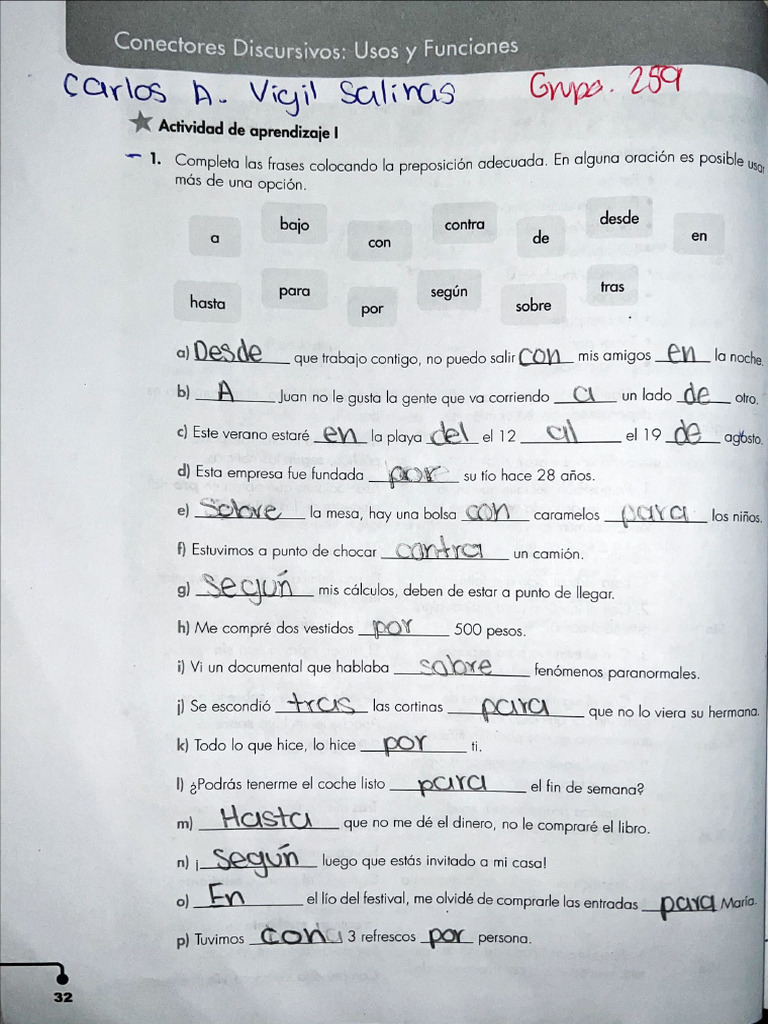 Conectores Discursivos: Usos y Funciones
Carlos A. Vigil Salinas Grupo. 259
Actividad de aprendizaje I
1. Completa las frases colocando la preposición adecuada. En alguna oración es posible usar
más de una opción.
a bajo con contra de desde en
hasta para por según sobre tras
a) Desde que trabajo contigo, no puedo salir con mis amigos en la noche.
b) A Juan no le gusta la gente que va corriendo a un lado de otro.
c) Este verano estaré en la playa del el 12 al el 19 de agosto.
d) Esta empresa fue fundada por su tío hace 28 años.
e) Sobre la mesa, hay una bolsa con caramelos para los niños.
f) Estuvimos a punto de chocar contra un camión.
g) Según mis cálculos, deben de estar a punto de llegar.
h) Me compré dos vestidos por 500 pesos.
i) Vi un documental que hablaba sobre fenómenos paranormales.
j) Se escondió tras las cortinas para que no lo viera su hermana.
k) Todo lo que hice, lo hice por ti.
l) ¿Podrás tenerme el coche listo para el fin de semana?
m) Hasta que no me dé el dinero, no le compraré el libro.
n) ¡Según luego que estás invitado a mi casa!
o) En el lío del festival, me olvidé de comprarle las entradas para María.
p) Tuvimos con 3 refrescos por persona.
32